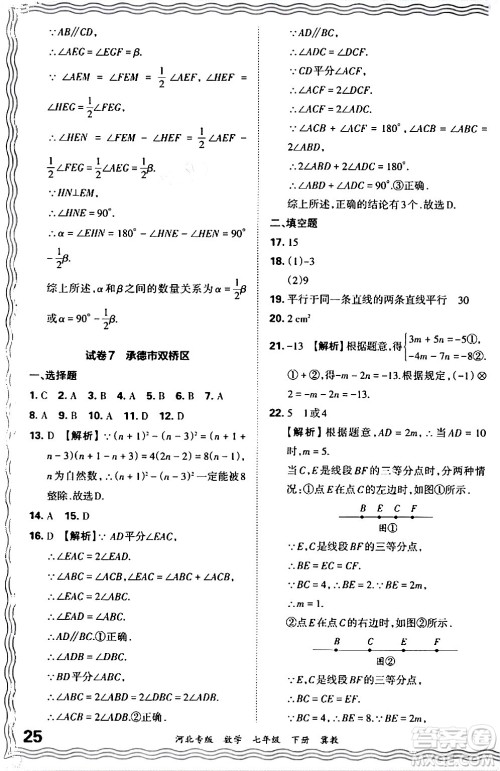 ∵AB∥CD,
∴∠AEG=∠EGF=β.
∴∠AEM=∠FEM=1/2∠AEF,∠HEF=
∠HEG=1/2∠FEG,
∴∠HEN=∠FEM-∠HEF=1/2∠AEF-
1/2∠FEG=1/2∠AEG=1/2β.
∵HN⊥EM,
∴∠HNE=90°.
∴α=∠EHN=180°-∠HNE-∠HEN=90°
-1/2β.
综上所述,α和β之间的数量关系为α=1/2β或
α=90°-1/2β.
试卷7 承德市双桥区
一、选择题
1. C 2. A 3. B 4. B 5. D 6. B 7. D
8. A 9. A 10. A 11. D 12. D
13. D 【解析】∵(n+1)²-(n-3)²=(n+1+
n-3)(n+1-n+3)=4(2n-2)=8(n-1),
n为自然数,∴(n+1)²-(n-3)²一定能被8
整除.故选D.
14. A 15. D
16. D 【解析】∵AD平分∠EAC,
∴∠EAC=2∠EAD.
∵∠EAC=∠ABC+∠ACB,∠ABC=∠ACB,
∴∠EAC=2∠ABC.
∴∠EAD=∠ABC.
∴AD∥BC.①正确.
∴∠ADB=∠DBC.
∵BD平分∠ABC,
∴∠ABC=2∠DBC.
∴∠ABC=2∠ADB.
∵∠ABC=∠ACB,
∴∠ACB=2∠ADB.②正确.
∵AD∥BC,
∴∠ADC=∠DCF.
∵CD平分∠ACF,
∴∠ACF=2∠DCF.
∴∠ACF=2∠ADC.
∵∠ACB+∠ACF=180°,∠ACB=∠ABC=
2∠ABD,
∴2∠ABD+2∠ADC=180°.
∴∠ADC=90°-∠ABD.③正确.
综上所述,正确的结论有3个.故选D.
二、填空题
17. 15
18. (1)-3
(2)9
19. 平行于同一条直线的两条直线平行 30
20. 2 cm²
21. -13 【解析】根据题意,得{3m+5n=9①,
-4m-7n=-8②,
①+②,得-m-2n=1.
①+②×2,得-5m-9n=-7.
22. 5 1或4
【解析】根据题意,AD=2m,∴当AD=10
时,m=5.
当E,C是线段BF的三等分点时,分两种情
况:①点E在C的左边时,如图①.
B E C F
图①
∵E,C是线段BF的三等分点,
∴BE=EC=CF=2m.
∵BC=4,∴BE=2=2m.
∴m=1.
②点E在C的右边时,如图②.
B C E F
图②
∵E,C是线段BF的三等分点,
∴BC=CE=EF.
∵BC=4,∴BE=8=2m.
∴m=4.
25
河北专版 数学 七年级 下册 冀教